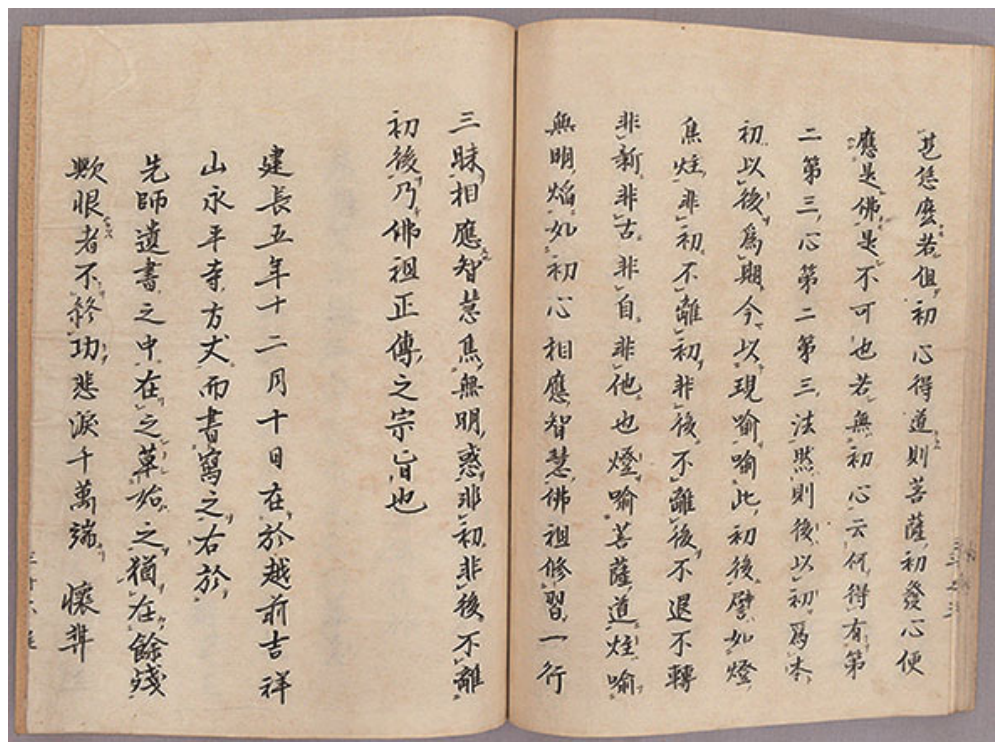 甚恁麼若但初心得道則菩薩初發心便
應是佛是不可也若無初心云何得有第
二第三心第二第三法然則後以初爲本
初以後爲期今以現喻喻此初後譬如燈
焦炷非初不離初非後不離後不退不轉
非新非古非自非他也燈喻菩薩道炷喻
無明焔如初心相應智慧佛祖修習一行
三昧相應智慧焦無明惑非初非後不離
初後乃佛祖正傳之宗旨也
建長五年十二月十日在於越前吉祥
山永平寺方丈而書寫之右於
先師遺書之中在之草始之猶在餘残
歟恨者不終功悲涙千萬端 懷弉